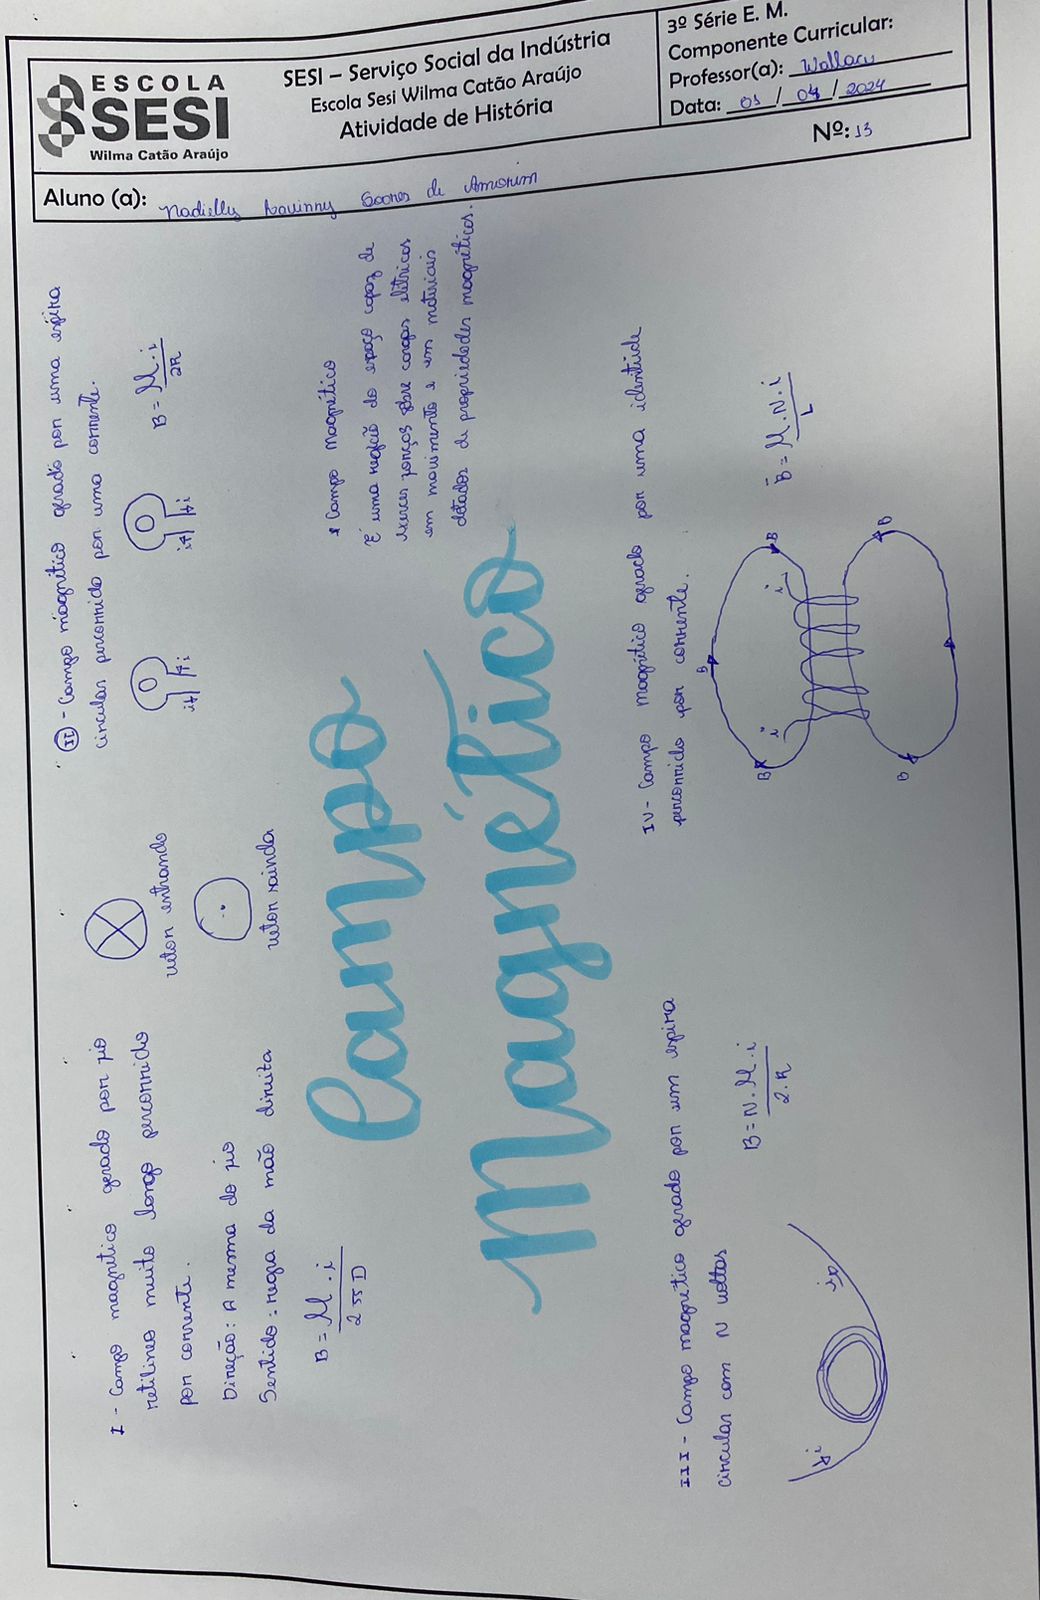 ESCOLA
SESI
Wilma Catão Araújo
SESI – Serviço Social da Indústria
Escola Sesi Wilma Catão Araújo
Atividade de História
3º Série E. M.
Componente Curricular:
Professor(a): Wallace
Data: 01 / 04 / 2024
Nº: 13
Aluno (a): Nadielly Lavinny Soares de Amorim
I - Campo magnético gerado por fio
retilíneo muito longo percorrido
por corrente.
Direção: A mesma do fio
Sentido: regra da mão direita
B = μ . i
2 π D
vetor entrando
vetor saindo
II - Campo magnético gerado por uma espira
circular percorrida por uma corrente.
i i
i i
B = μ . i
2R
Campo
Magnético
* Campo Magnético
É uma região do espaço capaz de
exercer forças sobre cargas elétricas
em movimento e em materiais
dotados de propriedades magnéticas.
III - Campo magnético gerado por um espira
circular com N voltas
i
i
B = N . μ . i
2 . R
IV - Campo magnético gerado por uma identuide
percorrido por corrente.
B
B
B
i
i
B
B
B = μ . N . i
L